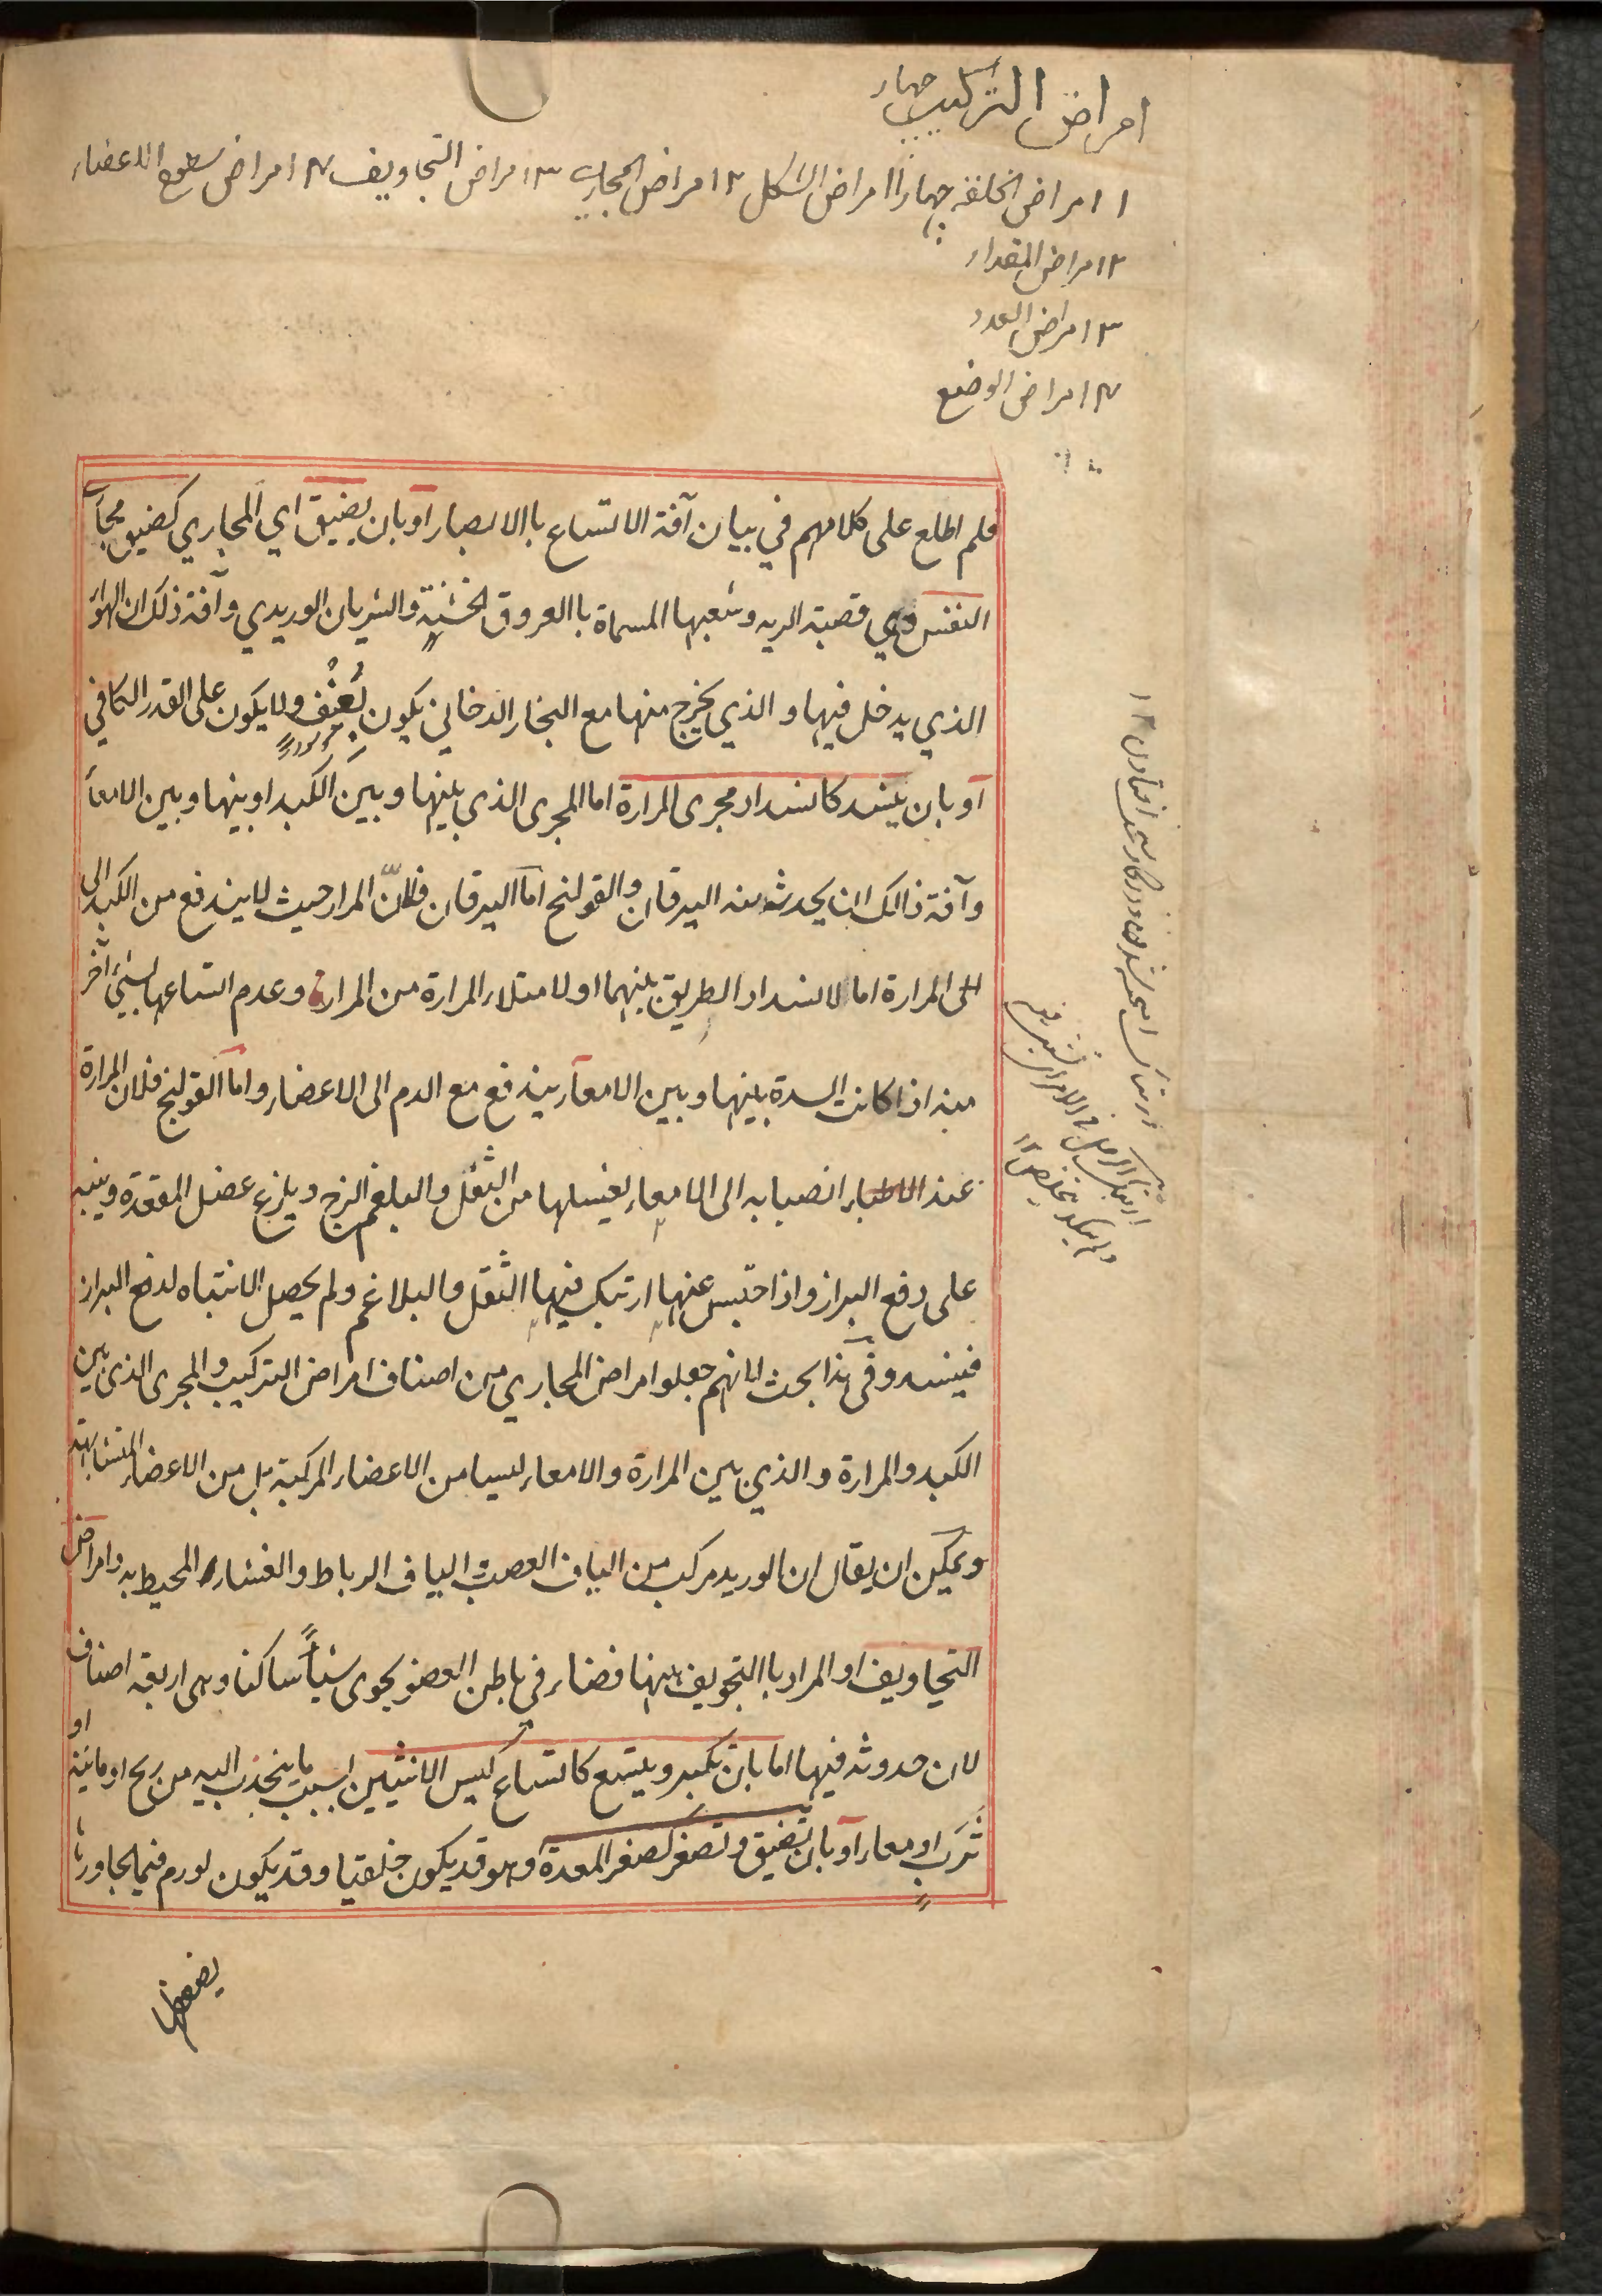 امراض الترکیب چهار
۱ امراض الخلقة چهار ۱ امراض الشکل ۲ امراض المجاری ۳ امراض التجاویف ۴ امراض سطوح الاعضاء
۲ امراض المقدار
۳ امراض العدد
۴ امراض الوضع
فلم اطلع على كلامهم في بيان آفة الاتساع باالابصار او بان يضيق اي المجاري كضيق مجاري
النفس وهي قصبة الريه وشعبها المسماة باالعروق الخشنة والشريان الوريدي وآفة ذلك ان الهواء
الذي يدخل فيها و الذي يخرج منها مع البخار الدخاني يكون بعنف ولا يكون على القدر الكافي
او بان ينسد كانسداد مجرى المرارة اما المجرى الذي بينها وبين الكبد او بينها وبين الامعاء
وآفة ذالك ان يحدث منه اليرقان والقولنج اما اليرقان فلانّ المرار حيث لا يندفع من الكبد الى
الى المرارة اما لانسداد الطريق بينهما او لامتلاء المرارة من المرارة وعدم اتساعها لشئ آخر
منه اذا كانت السدة بينها وبين الامعاء يندفع مع الدم الى الاعضاء واما القولنج فلان المرارة
عند الاطباء انصبابه الى الامعاء يغسلها من الثفل والبلغم اللزج ويلذع عضل المقعدة وينبه
على دفع البراز واذا احتبس عنها ارتبك فيها الثفل والبلاغم ولم يحصل الانتباه لدفع البراز
فينسد وفى هذا بحث لانهم جعلوا امراض المجاري من اصناف امراض التركيب والمجرى الذى بين
الكبد والمرارة والذي بين المرارة والامعاء ليسا من الاعضاء المركبة بل من الاعضاء المتشابهة
ويمكن ان يقال ان الوريد مركب من الياف العصب والياف الرباط والغشاء المحيط به وامراض
التجاويف او المراد باالتجويف ههنا فضاء في باطن العضو يحوى شيأً ساكنا وهى اربعة اصناف
لان حدوثه فيها اما بان تكبر ويتسع كاتساع كيس الانثيين بسبب ما ينجذب اليه من ريح او مائية او
ثرب او معاء او بان تضيق وتصغر كصغر المعدة وهو قد يكون خلقيا وقد يكون لورم فيما يجاورها
يضغطها